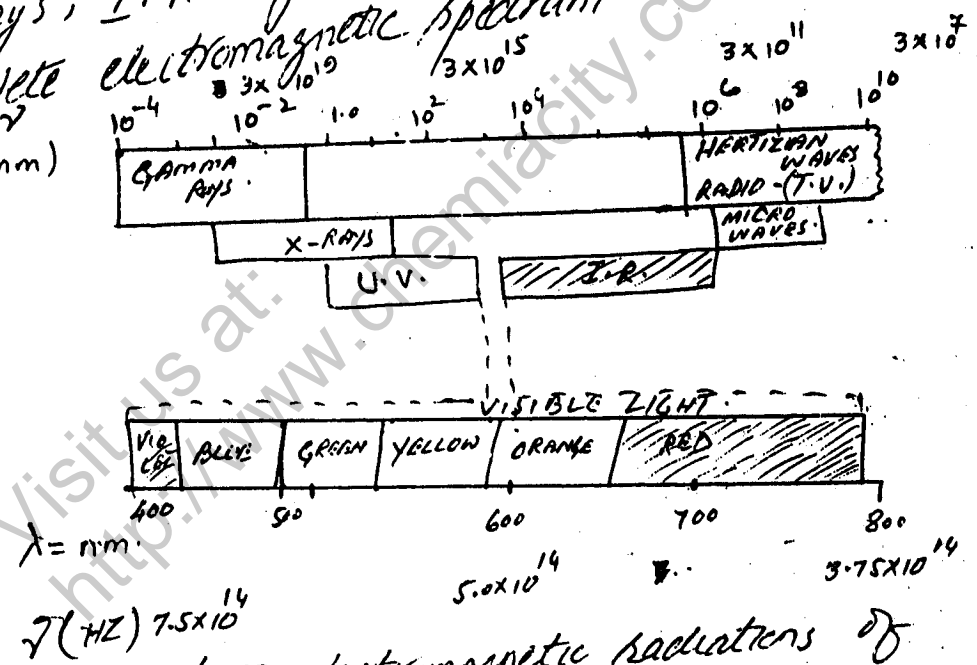 ete electromagnetic spectrum
3x 10^19 3x10^15 3x10^11 3x10^7
10^-4 10^-2 1.0 10^2 10^4 10^6 10^8 10^10
nm)
GAMMA RAYS.
HERTIZIAN WAVES
RADIO-(T.V.)
X-RAYS
MICRO WAVES.
U.V.
I.R.
VISIBLE LIGHT.
VIOLET BLUE GREEN YELLOW ORANGE RED
400 500 600 700 800
λ= nm.
5.0x10^14 3.75x10^14
ν(HZ) 7.5x10^14
radiations of
Visit us at:
http://www.chemiacity.co